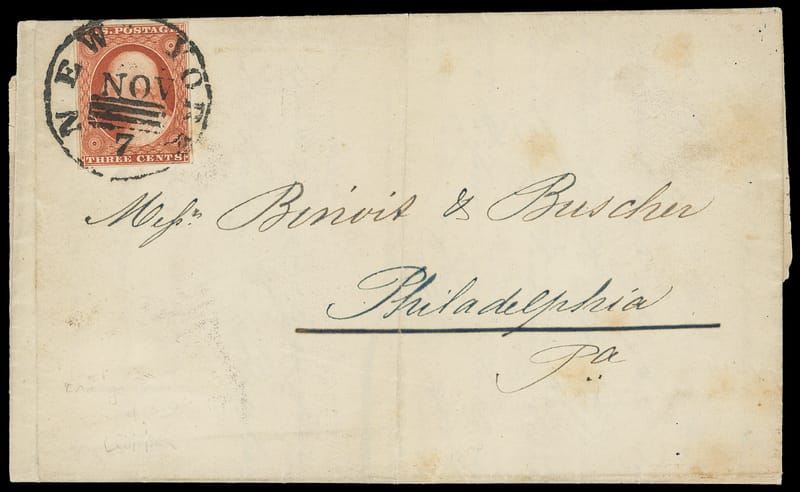 U.S. POSTAGE
NEW YORK
NOV
7
THREE CENTS
Messrs Binoit & Buscher
Philadelphia
Pa